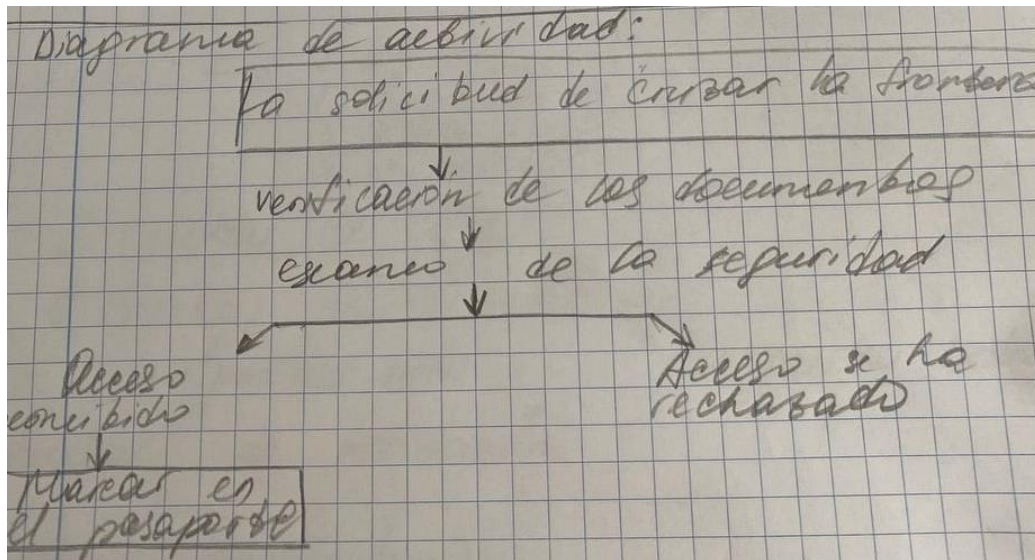 Diagrama de actividad:
La solicitud de cruzar la frontera
verificación de los documentos
escaneo de la seguridad
Acceso
Acceso se ha
rechazado
concibido
Marcar en
el pasaporte